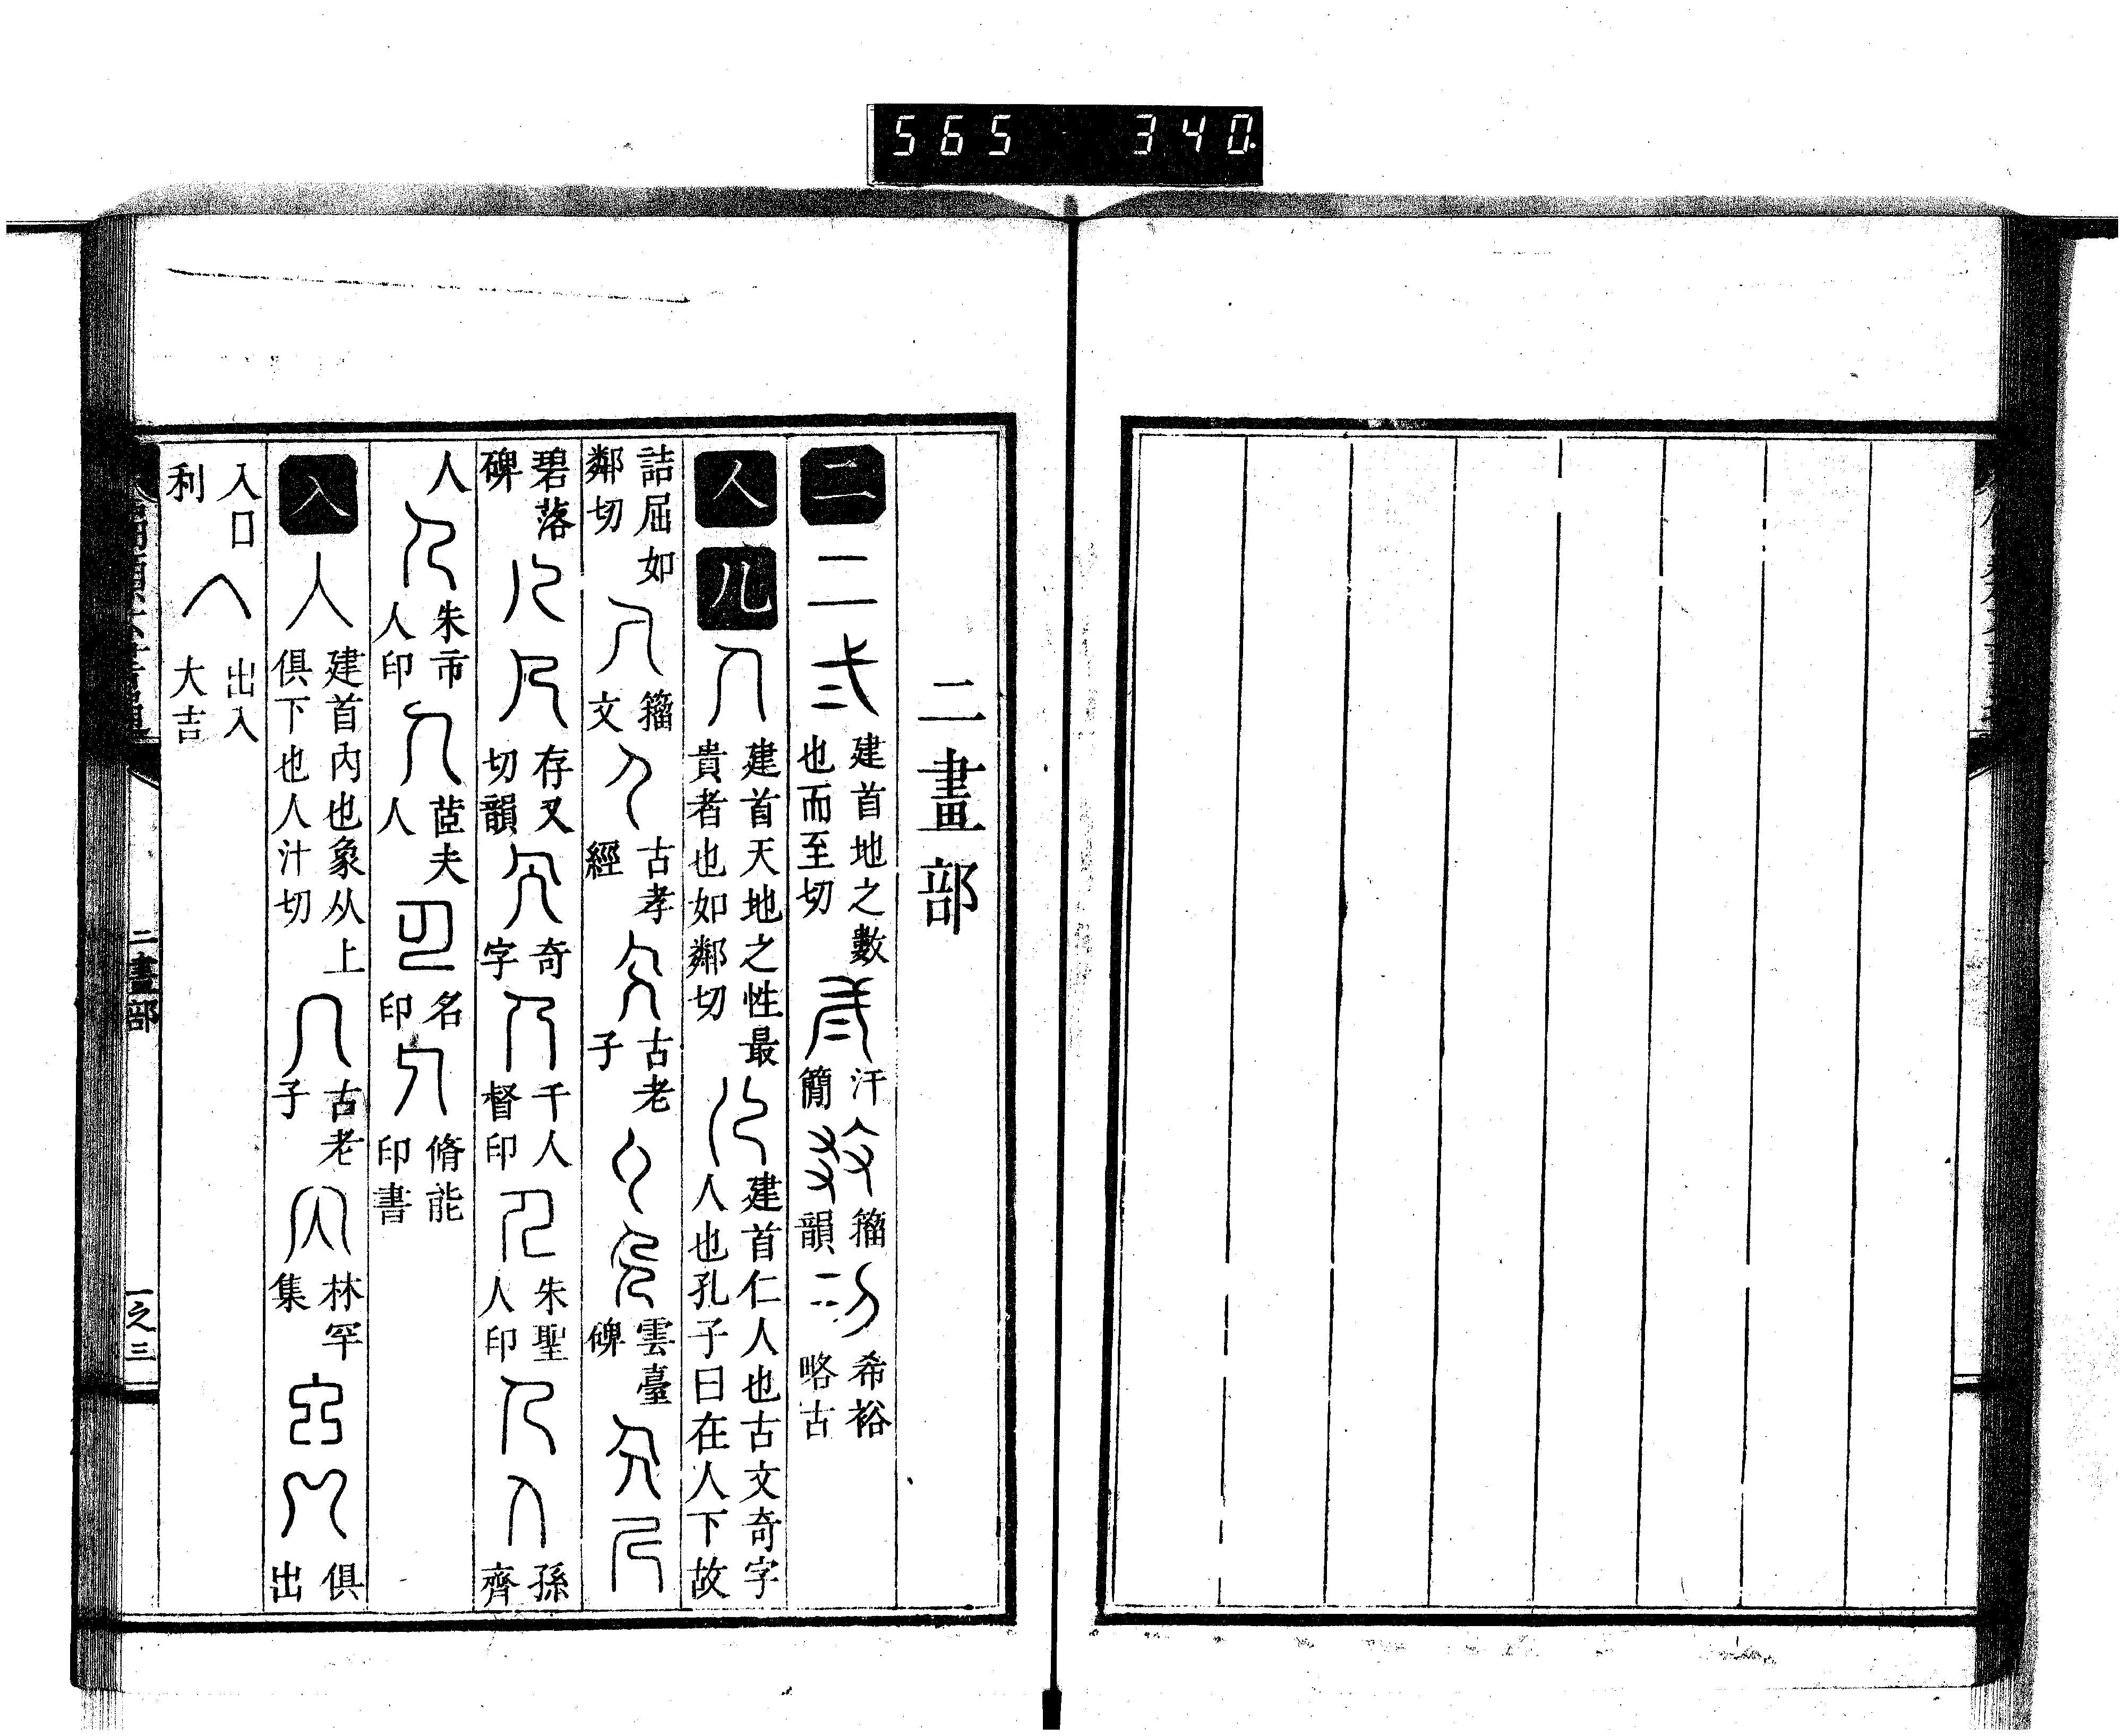 565 340
二畫部
二 二 弍 建首地之數
也而至切 汗
簡 籀
韻 希裕
略古
人 儿 建首天地之性最
貴者也如鄰切 建首仁人也古文奇字
人也孔子曰在人下故
詰屈如
鄰切 籀
文 古孝
經 古老
子 雲臺
碑
碧落
碑 存乂
切韻 奇
字 千人
督印 朱聖
人印 孫
齊
人 朱帀
人印 茝夫
人 名
印 脩能
印書
入 建首內也象从上
俱下也人汁切 古老
子 林罕
集 俱
出
入口
利 出入
大吉
二畫部
一之三